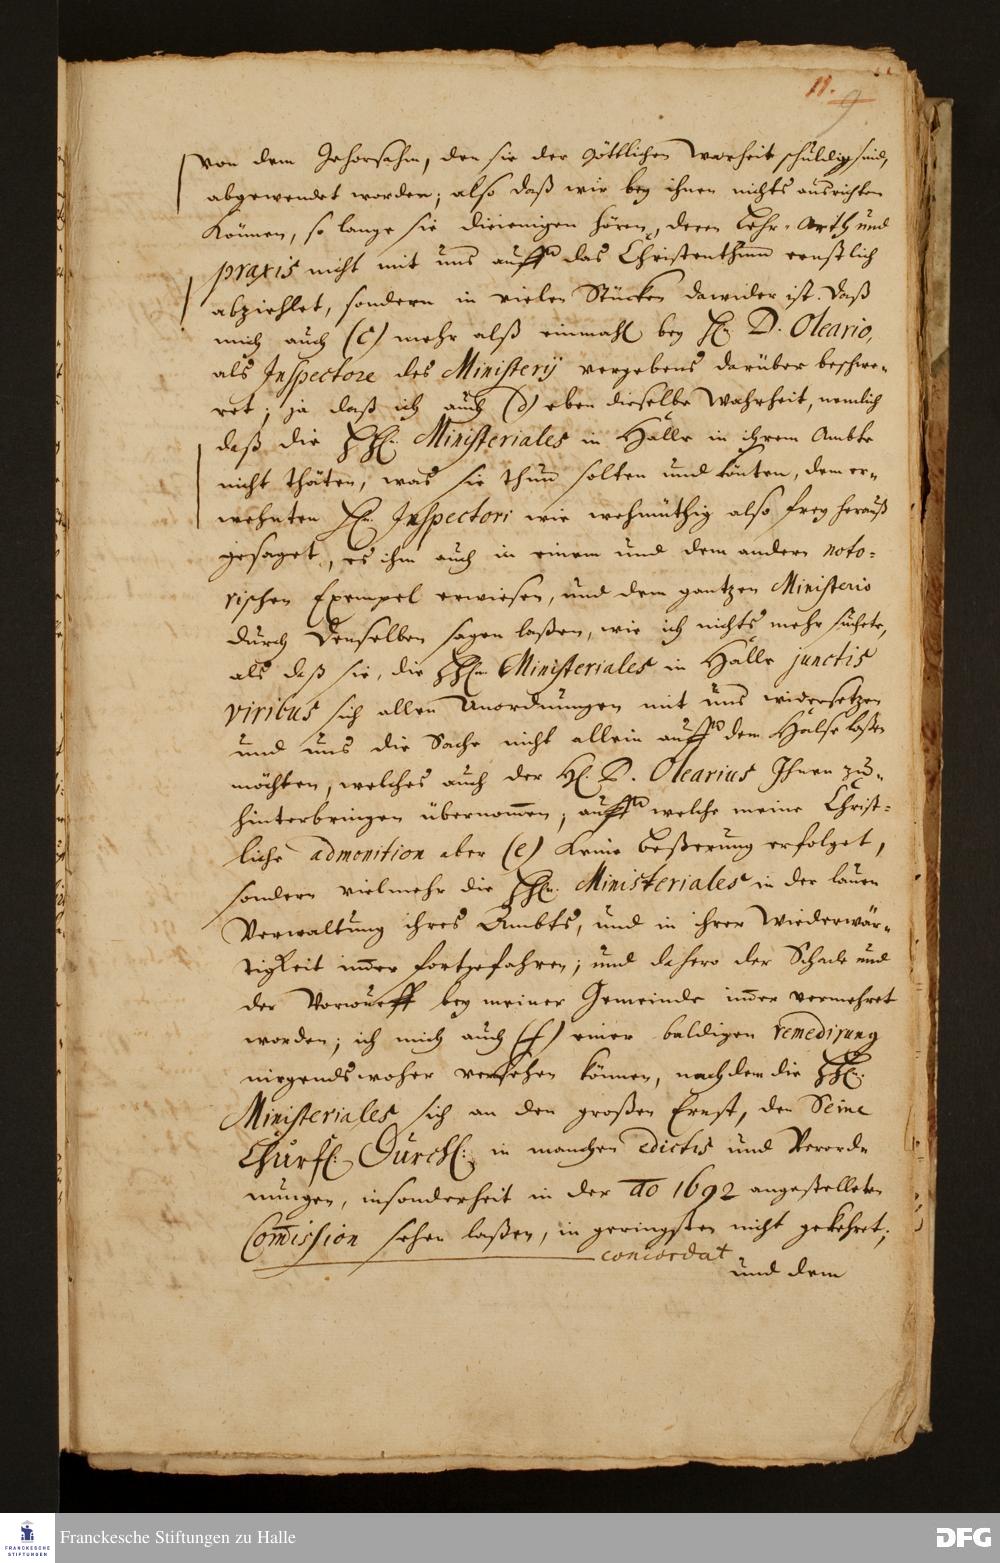 11.
9
von dem Gehorsahm, den sie der Göttlichen Warheit schuldig sind,
abgewendet worden; also daß wir bey ihnen nichts ausrichten
Können, so lange sie diejenigen hören, deren Lehr-Arth und
praxis nicht mit uns auff das Christenthum ernstlich
abziehlet, sondern in vielen Stücken dawider ist. Daß
mich auch (c) mehr alß einmahl bey H. D. Oleario,
als Inspectore des Ministerij vergebens darüber beschwe-
ret; ja daß ich auch (d) eben dieselbe Wahrheit, nemlich
daß die HH. Ministeriales in Halle in ihrem Ambte
nicht thäten, was sie thun solten und könten, dem er-
wehnten H. Inspectori wie wehmüthig also frey herauß
gesaget, es ihm auch in einem und dem andern noto-
rischen Exempel erwiesen, und dem gantzen Ministerio
durch Denselben sagen laßen, wie ich nichts mehr suchete,
als daß sie, die HH. Ministeriales in Halle junctis
viribus sich allen Unordnungen mit uns widersetzen
und uns die Sache nicht allein auff dem Halse laßen
möchten, welches auch der H. D. Olearius Ihnen zu-
hinterbringen übernom̄en; auff welche meine Christ-
liche admonition aber (e) Keine Beßerung erfolget,
sondern vielmehr die HH. Ministeriales in der lauen
Verwaltung ihres Ambts, und in ihrer Wiederwär-
tigkeit im̄er fortgefahren; und dahero der Schade und
der Vorwurff bey meiner Gemeinde im̄er vermehret
worden; ich mich auch (f) einer baldigen remedirung
nirgends woher versehen können, nachdem die HH.
Ministeriales sich an den großen Ernst, den Seine
Churfl. Durchl. in manchen edictis und Verord-
nungen, insonderheit in der ao 1692 angestelleten
Com̄ission sehen laßen, in geringsten nicht gekehret;
concordat
und dem
Franckesche Stiftungen zu Halle
FRANCKESCHE
STIFTUNGEN
DFG